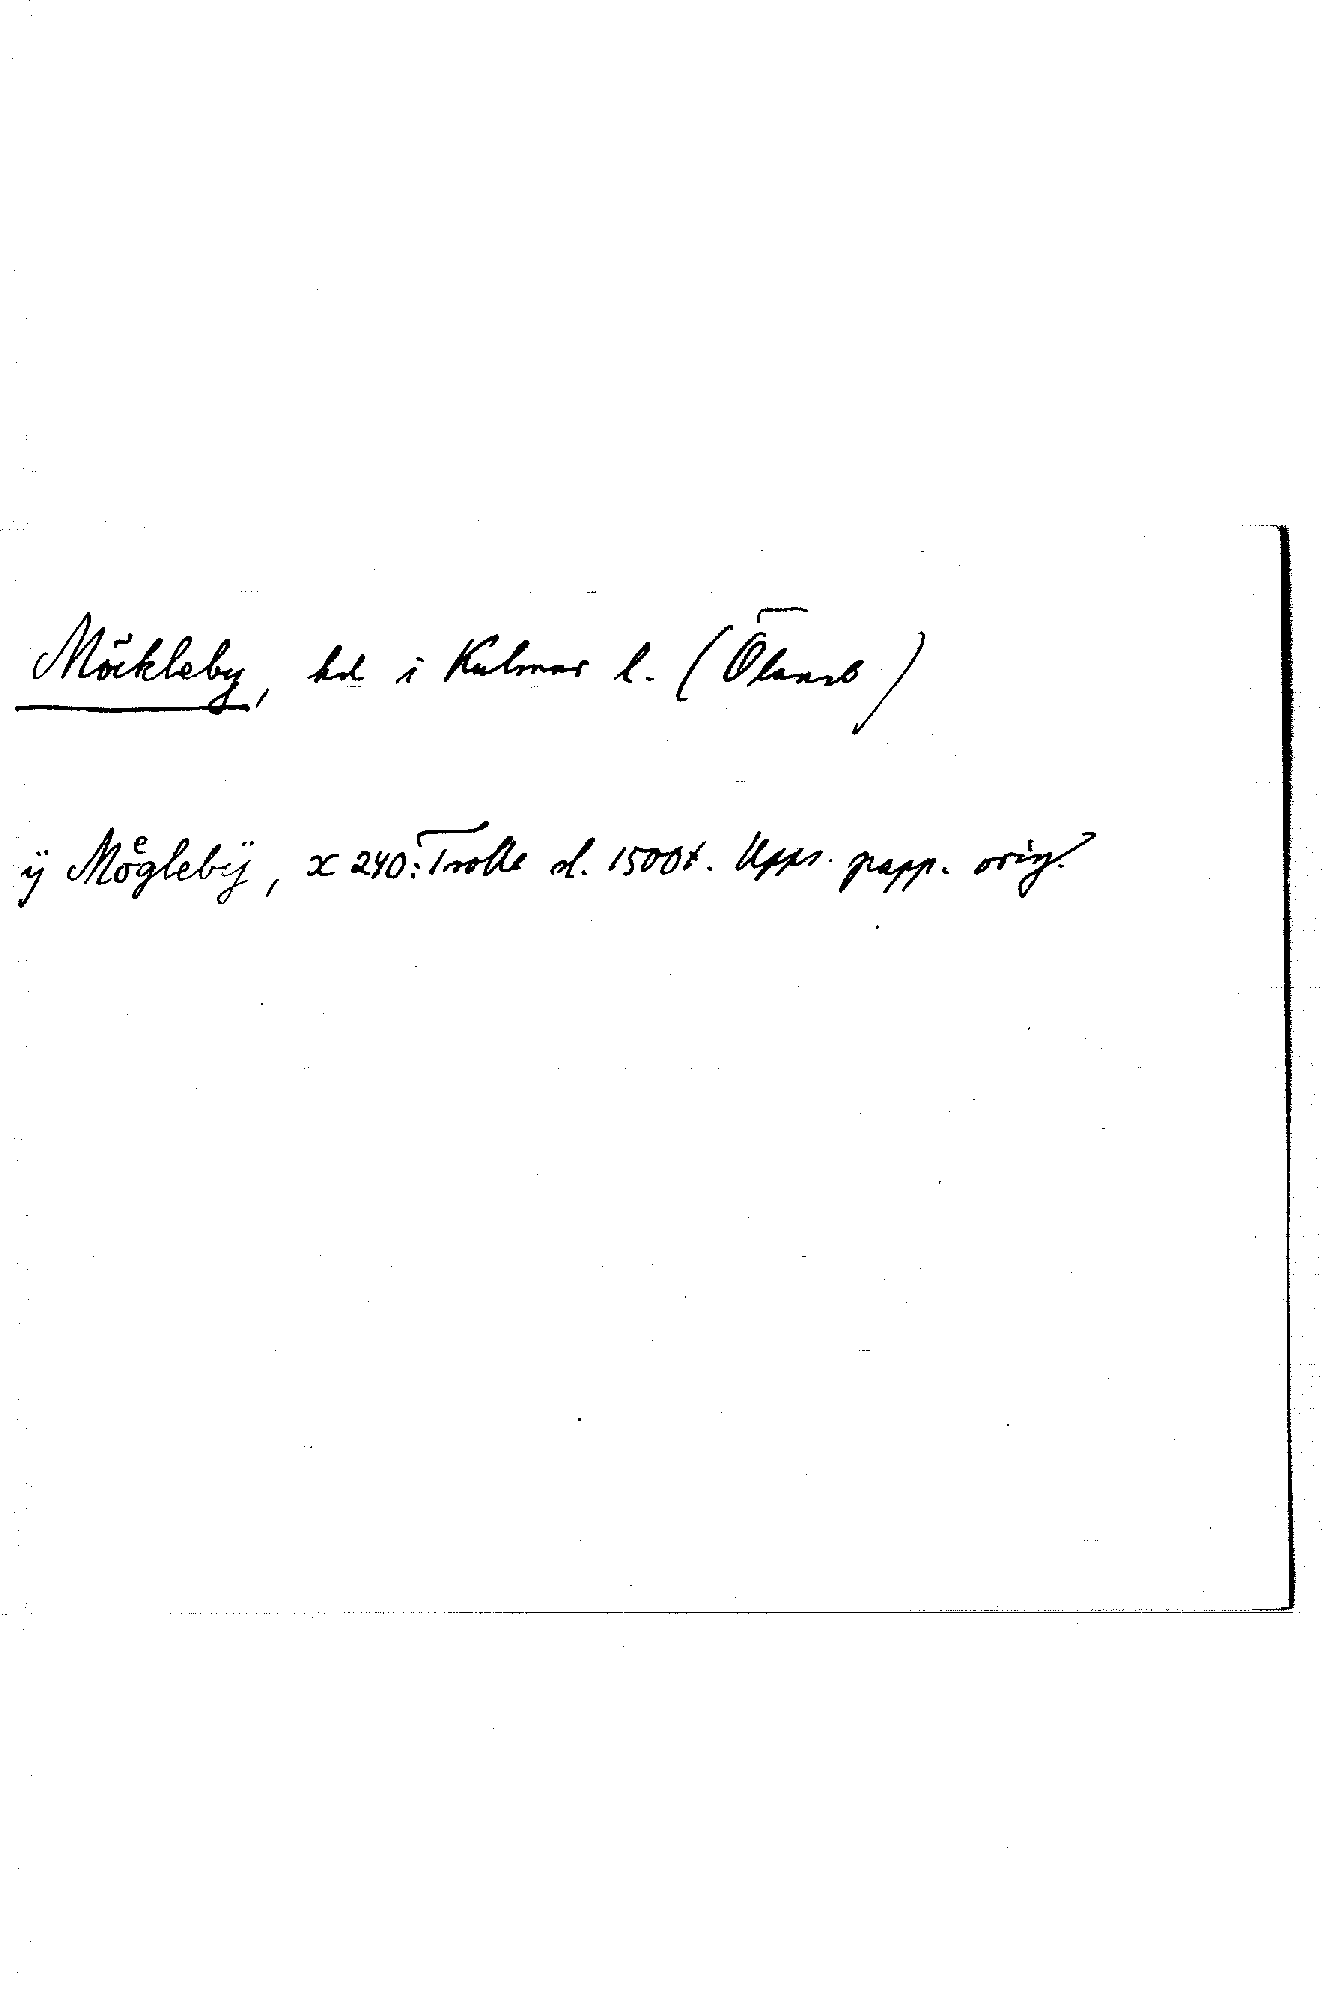 Möckleby, hd i Kalmar l. (Öland)
ÿ Moͤglebÿ, x 240: Trolle d. 1500t. Upps. papp. orig.